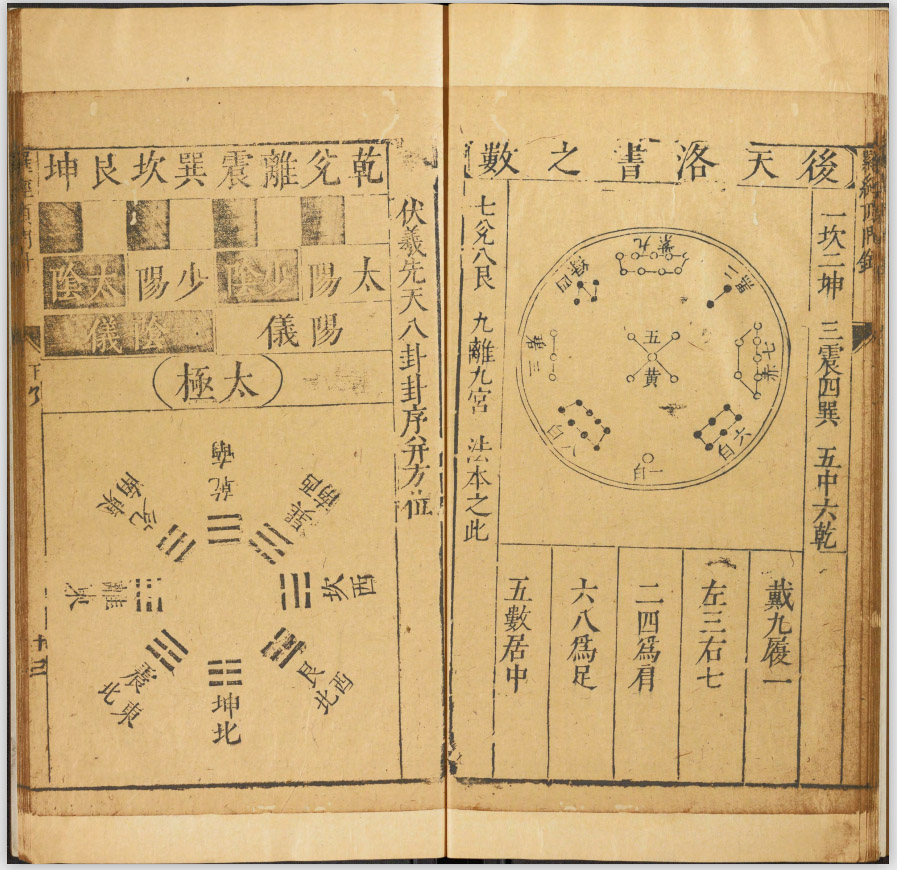 後天洛書之數
一坎二坤　三震四巽　五中六乾
九紫
二黑
四綠
七赤
五黃
三碧
六白
八白
一白
戴九履一
左三右七
二四為肩
六八為足
五數居中
七兌八艮　九離九宮　法本之此
伏羲先天八卦卦序并方位
乾兌離震巽坎艮坤
太陽　少陰　少陽　太陰
陽儀　陰儀
太極
乾南
兌東南
巽西南
離東
坎西
震東北
艮西北
坤北